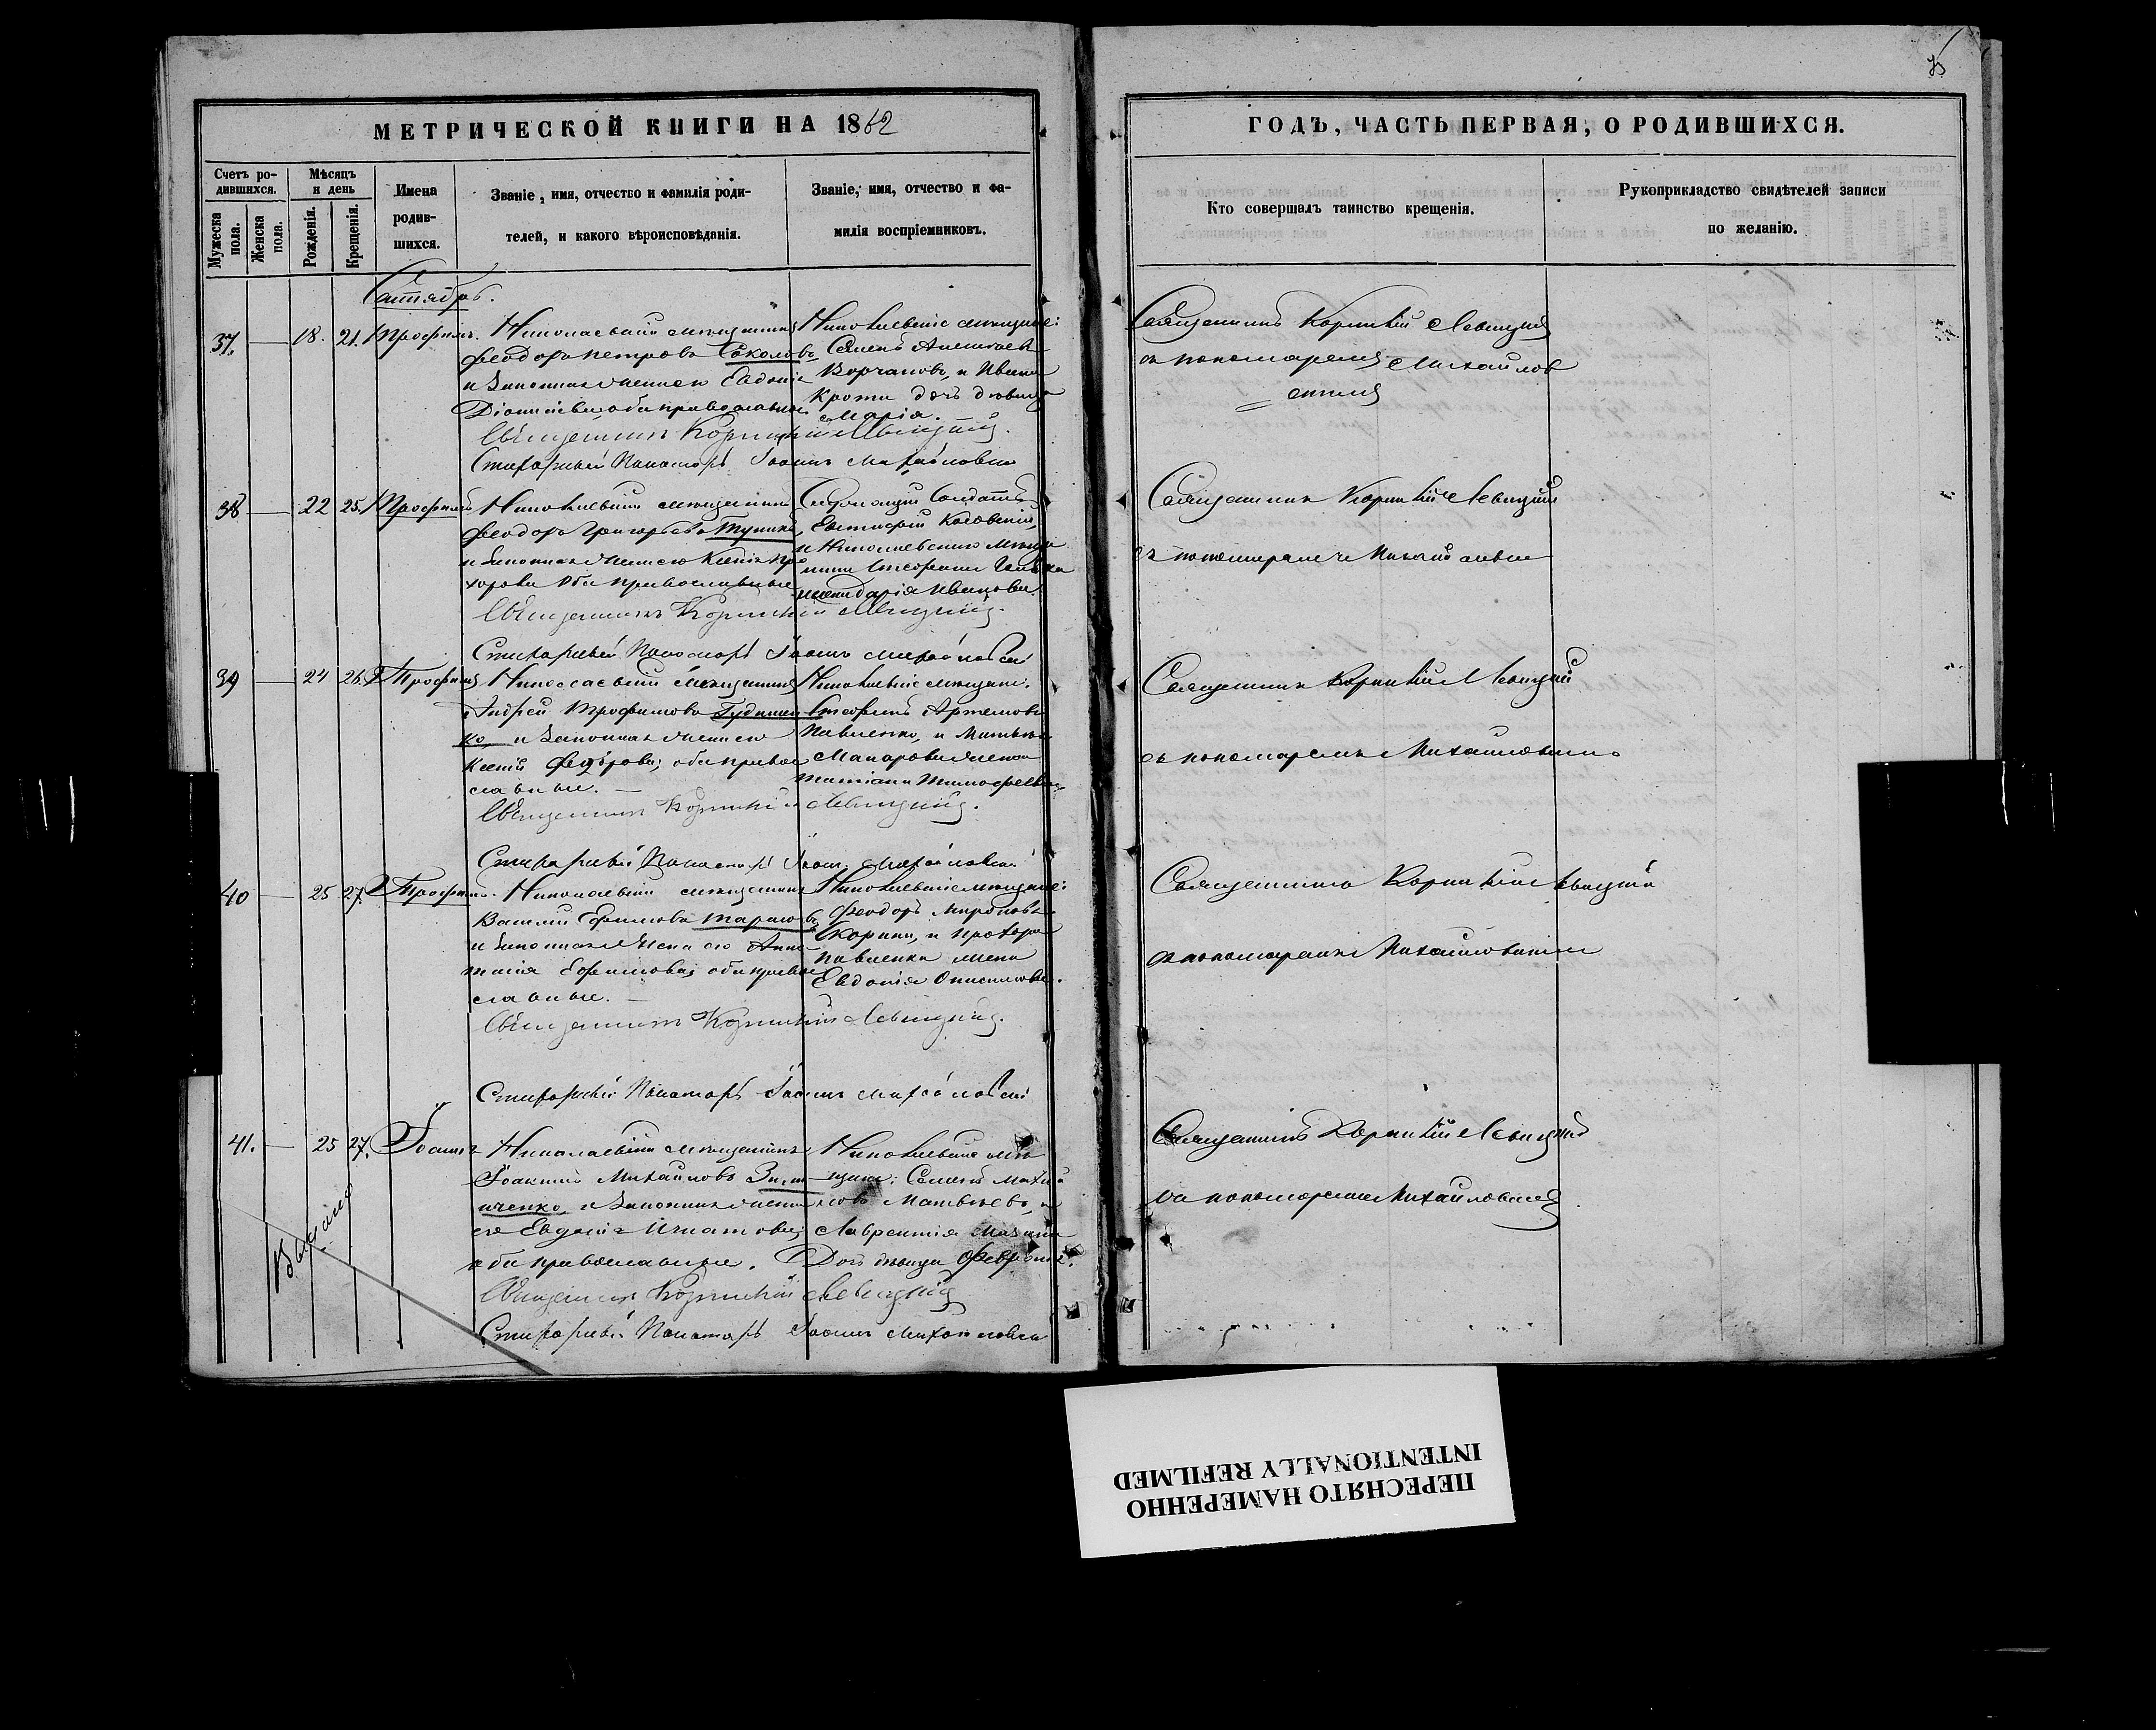 МЕТРИЧЕСКОЙ КНИГИ НА 1862
Счетъ ро-
дившихся.
Мужеска
пола.
Женска
пола.
Мѣсяцъ
и день
Рожденія.
Крещенія.
Имена
родив-
шихся.
Званіе, имя, отчество и фамилія роди-
телей, и какого вѣроисповѣданія.
Званіе, имя, отчество и фа-
милія воспріемниковъ.
37. 18. 21. Трофимъ. Николаевскій мѣщанинъ
Феодоръ Петровъ Соколовъ,
и законная жена его Евдокія
оба православные
Николаевскіе мѣщане:
Семенъ
и Ивана
дочь дѣвица
Марія.
Священникъ Корнилій Левицкій.
Стихарный Пономарь Іоаннъ Михайловскій
38 22 25. Трофимъ Николаевскій мѣщанинъ
Феодоръ Григорьевъ
и законная жена его Ксенія Про
хорова оба православные
Евстафій
и Николаевского мѣща
нина Стефана
жена Дарія Иванова
Священникъ Корнилій Левицкій.
Стихарный Пономарь Іоаннъ Михайловскій
39 24 26. Трофимъ Николаевскій мѣщанинъ
Андрей Трофимовъ
ко, и законная жена его
Ксенія Федорова; оба право
славные.
Николаевскіе мѣщане.
Стефанъ Артемовъ
Павленко, и
Макарова жена
Татіана Тимофеева
Священникъ Корнилій Левицкій.
Стихарный Пономарь Іоаннъ Михайловскій
40 25 27. Трофимъ. Николаевскій мѣщанинъ
Василій Ефимовъ Тарасовъ,
и законная жена его Анас
тасія Ефимова; оба право
славные.
Николаевскіе мѣщане:
Феодоръ Мироновъ
и Прохора
Павленка жена
Евдокія
Священникъ Корнилій Левицкій.
Стихарный Пономарь Іоаннъ Михайловскій
41. 25 27. Іоаннъ Николаевскій мѣщанинъ
Іоакимъ Михайловъ
ченко, и законная жена
его Евдокія Игнатова;
оба православные.
Николаевскіе мѣ
щане: Семенъ Михай
ловъ Матвѣевъ, и
Лаврентія
дочь дѣвица Февронія.
Священникъ Корнилій Левицкій
Стихарный Пономарь Іоаннъ Михайловскій
ГОДЪ, ЧАСТЬ ПЕРВАЯ, О РОДИВШИХСЯ.
Кто совершалъ таинство крещенія.
Рукоприкладство свидѣтелей записи
по желанію.
Священникъ Корнилій Левицкій
съ пономаремъ Михайлов
скимъ
Священникъ Корнилій Левицкій
съ пономаремъ Михайловскимъ
Священникъ Корнилій Левицкій
съ пономаремъ Михайловскимъ
Священникъ Корнилій Левицкій
съ пономаремъ Михайловскимъ
Священникъ Корнилій Левицкій
съ пономаремъ Михайловскимъ
ПЕРЕСНЯТО НАМЕРЕННО
INTENTIONALLY REFILMED